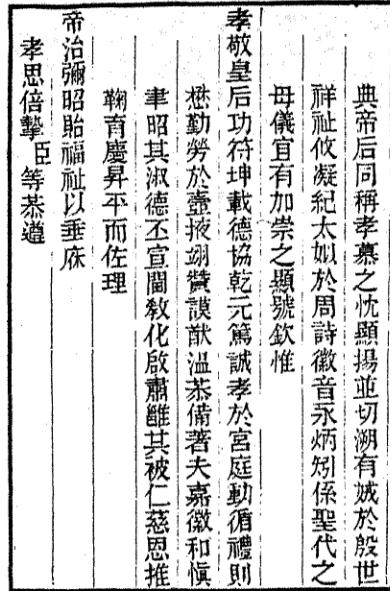 典帝后同稱孝慕之忱顯揚並切溯有娀於殷世
祥祉攸凝紀太姒於周詩徽音永炳矧係聖代之
母儀宜有加崇之顯號欽惟
孝敬皇后功符坤載德協乾元篤誠孝於宮庭動循禮則
懋勤勞於壼掖翊贊謨猷溫恭備著夫嘉徽和慎
聿昭其淑德丕宣閫教化啟肅雝其被仁慈恩推
鞠育慶昇平而佐理
帝治彌昭貽福祉以垂庥
孝思倍摯臣等恭遵